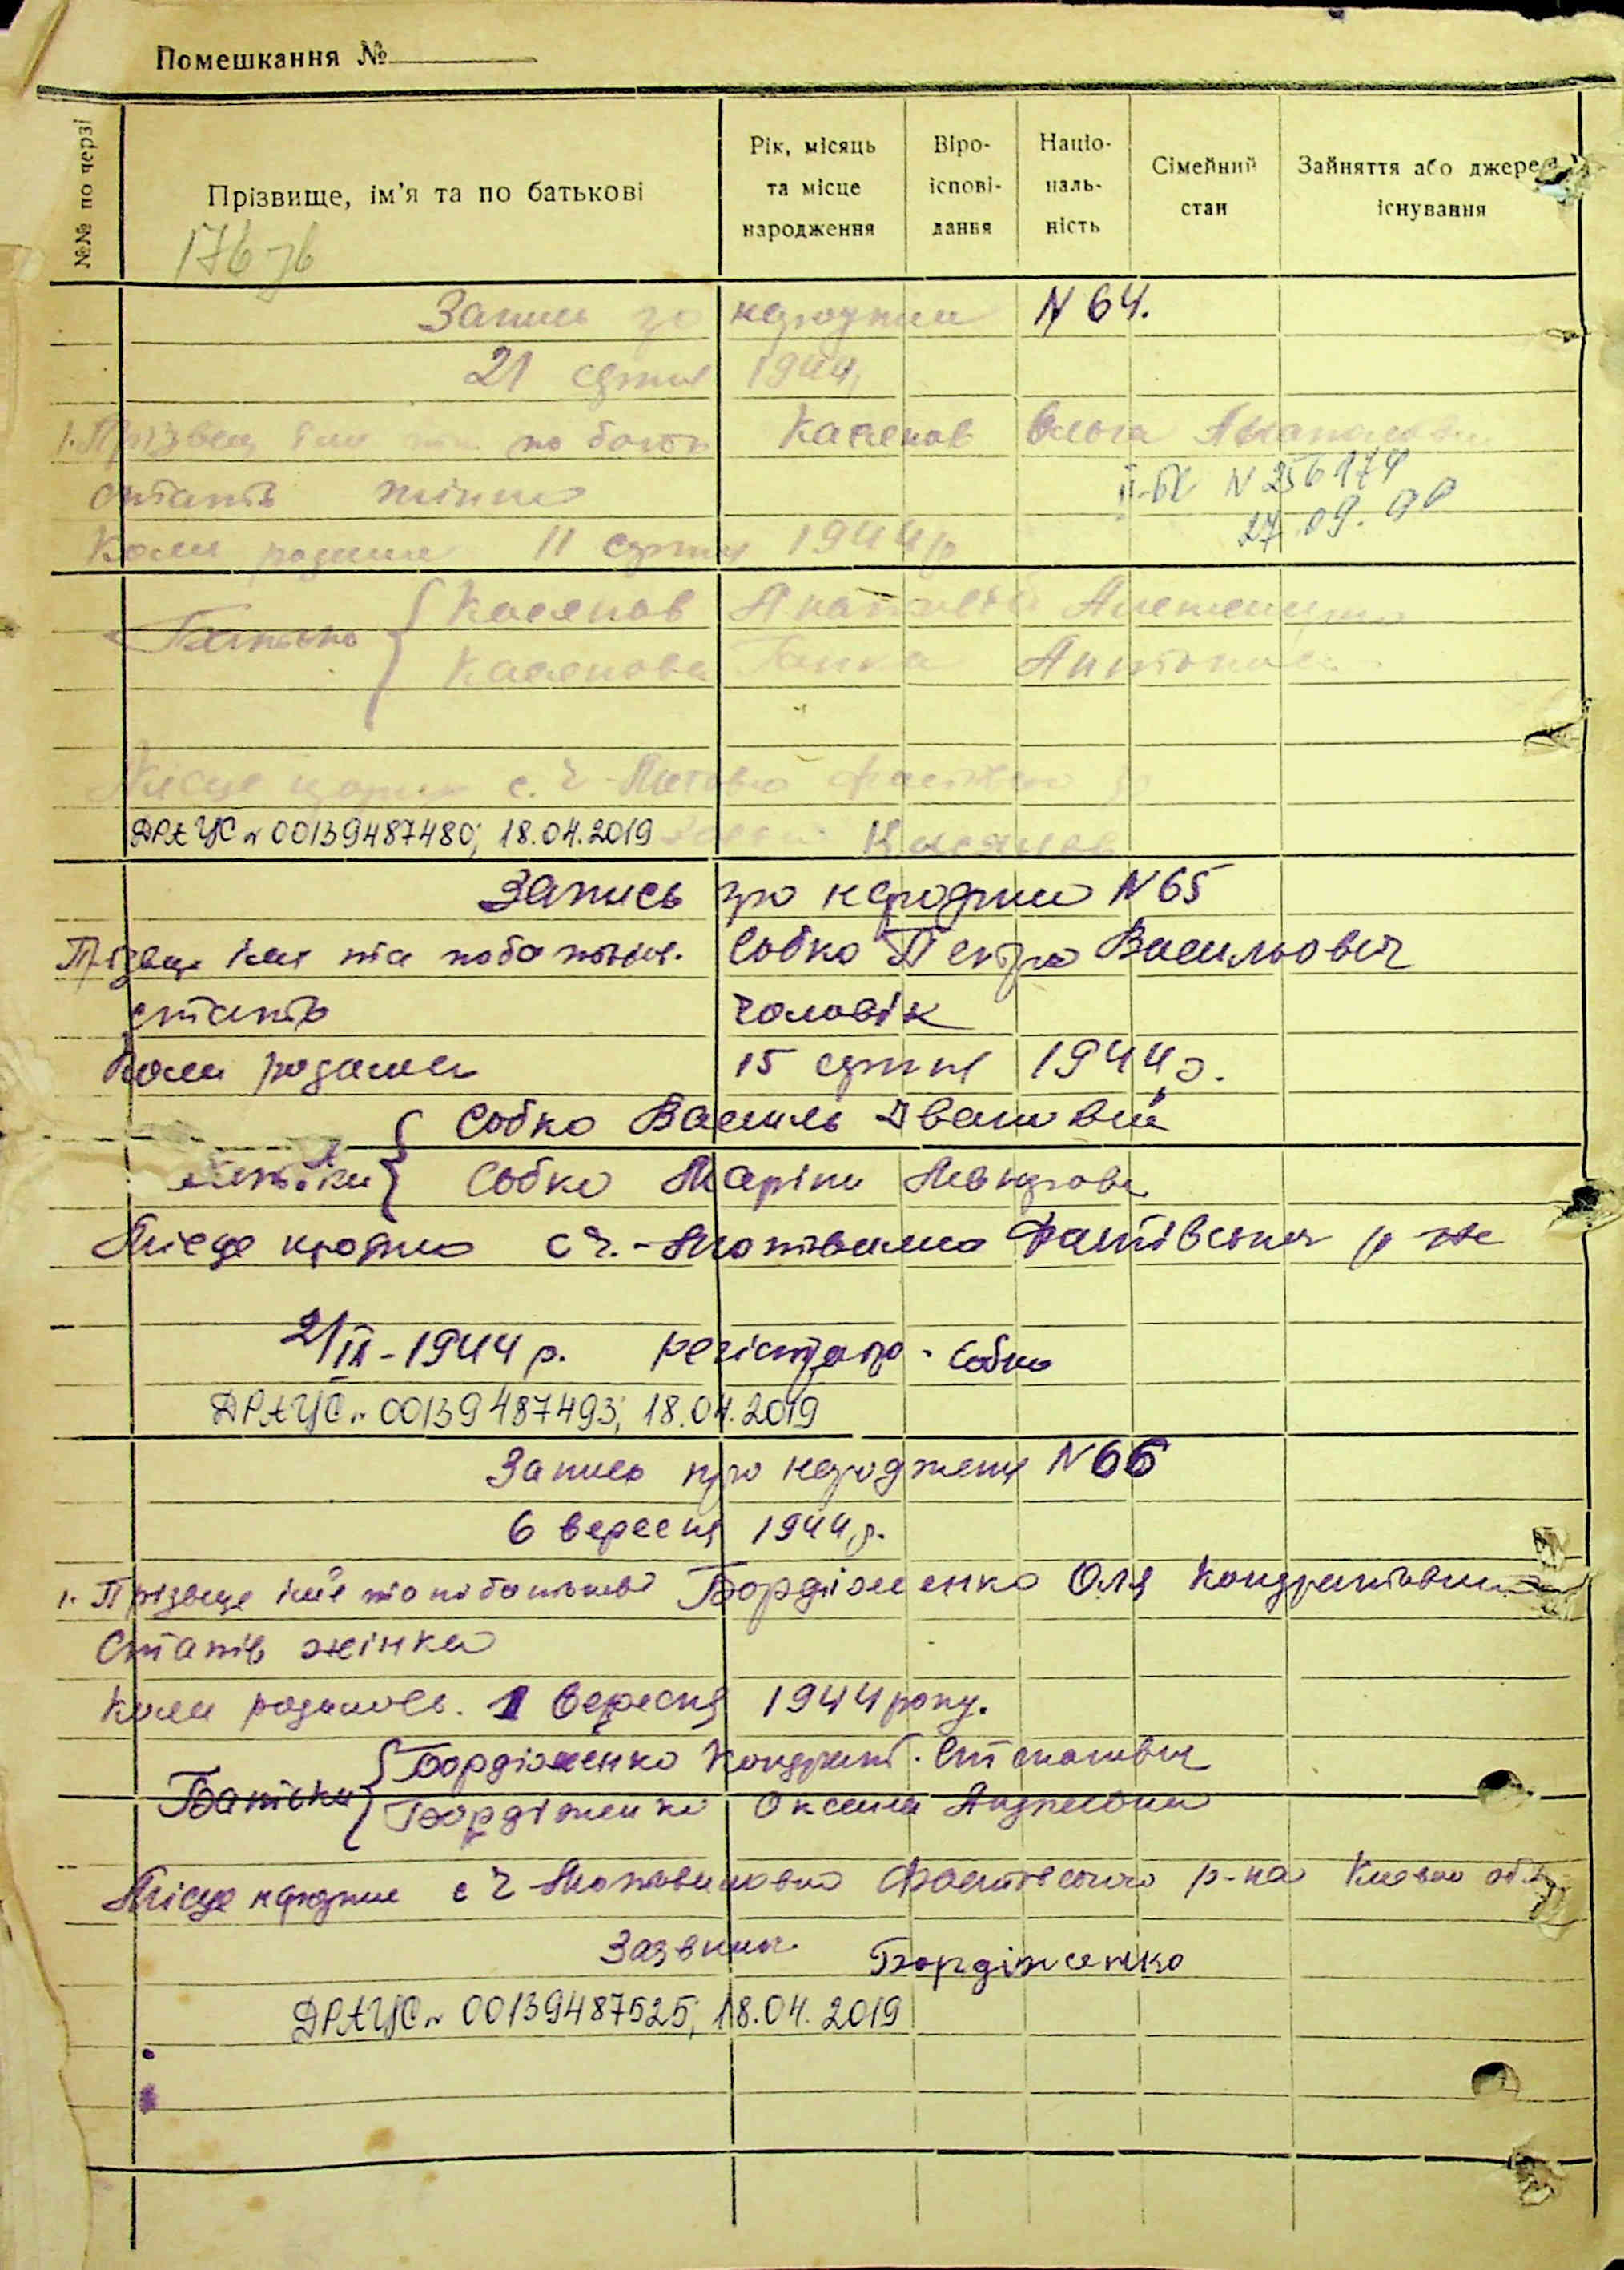 Помешкання №
№№ по черзі
Прізвище, ім'я та по батькові
Рік, місяць та місце народження
Віро-іспові-дання
Націо-наль-ність
Сімейний стан
Зайняття або джерела існування
176 зв
Запись про народжен N 64.
21 серпня 1944
1. Прізвещ імя та по батьк Касянов Ольга
стать жінка
II-БК N 256174
27.09.
Коли родилис 11 серпня 1944 р
Батько { Касянов
Касянова Ганна Антонов
Місце народж с. Ч-Мотов Фастівсь р
ДРАЦС № 00139487480; 18.04.2019
Касянов
Запись про народжен N 65
Прізвище імя та по батькові. Собко Петро Васильович
стать чоловік
Коли родилися 15 серпня 1944 р.
{ Собко Василь Іванович
Батьки { Собко Маріна
Місце народж с Ч.-Мотовилів Фастівський р-на
21/IX-1944 р. регістратор - Собко
ДРАЦС № 00139487493; 18.04.2019
Запись про народження N 66
6 вересня 1944 р.
1. Прізвище імя та по батькові Бордіженко Оля Кондратівна
Стать жінка
Коли родилось. 1 вересня 1944 року.
Батьки { Бордіженко Кондрат Степанович
Бордіженко Оксана Андріївна
Місце народжен с Ч Мотовиловка Фастівського р-на Києвско обл
Заявник Бордіженко
ДРАЦС № 00139487525; 18.04.2019